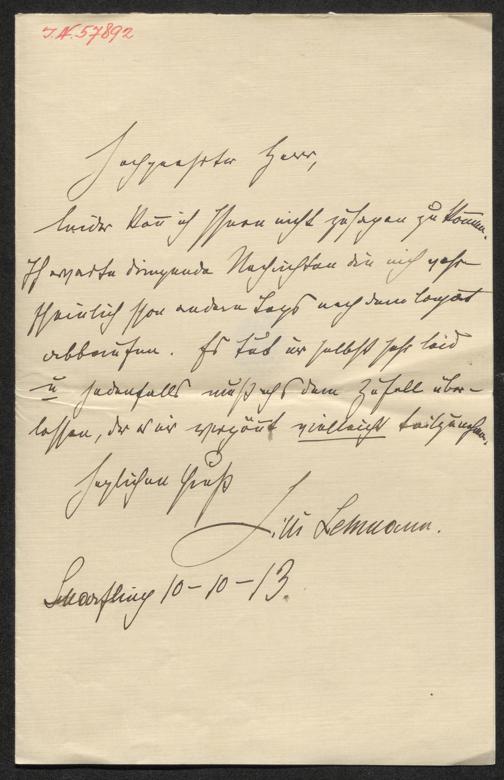 J.N. 57892
Hochgeehrter Herr,
leider kann ich Ihnen nicht zusagen zu kommen.
Ich erwarte dringende Nachrichten die mich wahr-
scheinlich schon andern Tags nach dem
abberufen. Es tut mir selbst sehr leid
u jedenfalls muß ich es dem Zufall über-
lassen, der es mir vergönnt vielleicht teilzunehmen.
Herzlichen Gruß
Lilli Lehmann.
Scharfling 10-10-13.